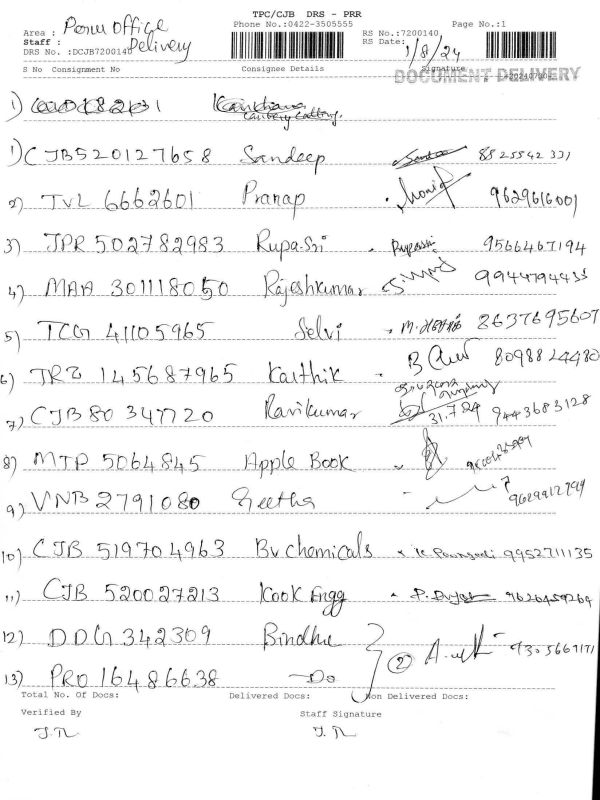 TPC/CJB DRS - PRR
Phone No.:0422-3505555
Page No.:1
Area : Perur Office
Staff : Delivery
DRS No. :DCJB7200140
RS No.:7200140
RS Date: 1/8/24
S No Consignment No Consignee Details Signature
DOCUMENT DELIVERY
1)
1) CJB520127658 Sandeep 8825542331
2) TVL 6662601 Pranap 9629616001
3) JPR 502782983 Rupasri Rupasri 9566467194
4) MAA 301118050 Rajeshkumar 9944794433
5) TCG 41105965 Selvi 8637695607
6) TRZ 145687965 Karthik 8098824480
7) CJB80 347720 Ravikumar 31.7.24 9443683128
8) MTP 5064845 Apple Book
9) VNB 2791080 Geetha 9629912799
10) CJB 519704963 Bv chemicals 9952711135
11) CJB 520027213 Kook Engg
12) DDG 342309 Bindhu
13) PRO 16486638 Do 2
Total No. Of Docs: Delivered Docs: Non Delivered Docs:
Verified By Staff Signature